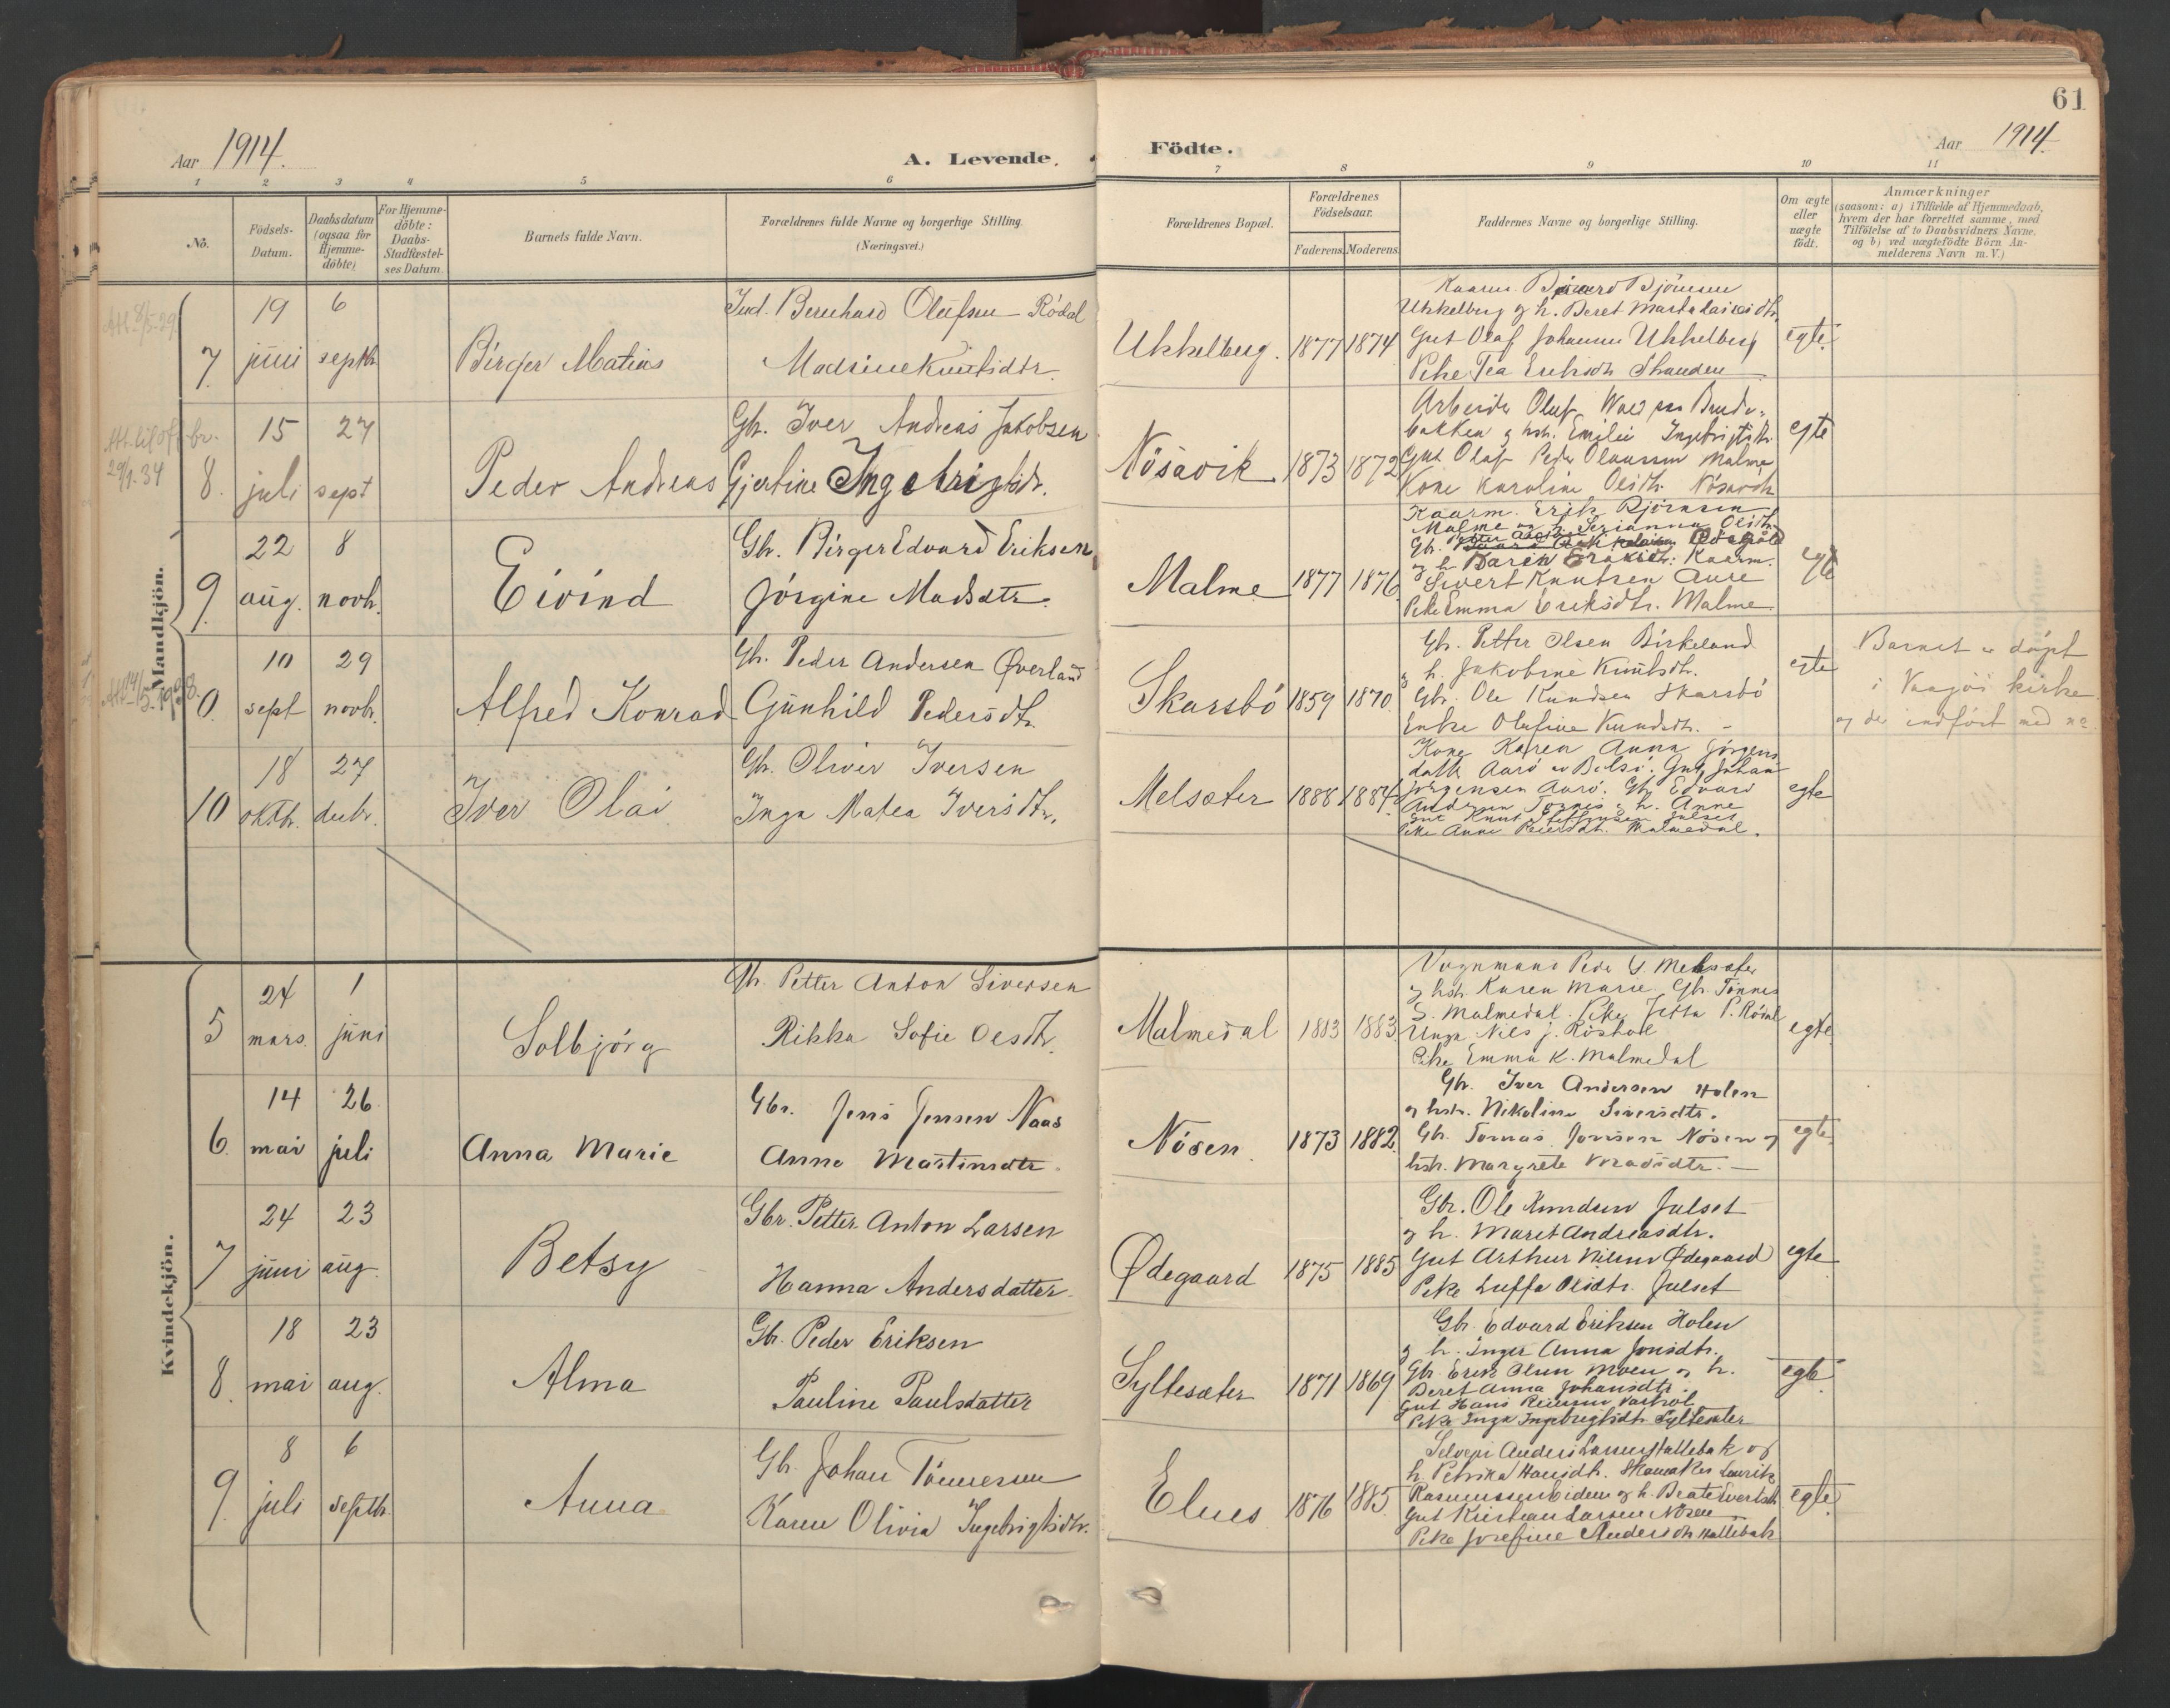 61
Aar 1914.
A. Levende.
Födte.
Aar 1914
1 2 3 4 5 6 7 8 9 10 11
No.
Födsels-Datum.
Daabsdatum (ogsaa for Hjemme-döbte)
For Hjemme-döbte: Daabs-Stadfæstel-ses Datum.
Barnets fulde Navn.
Forældrenes fulde Navne og borgerlige Stilling.
(Næringsvei.)
Forældrenes Bopæl.
Forældrenes Födselsaar.
Faderens. Moderens.
Faddernes Navne og borgerlige Stilling.
Om ægte eller uægte födt.
Anmærkninger
(saasom: a) i Tilfælde af Hjemmedaab,
hvem der har forrettet samme, med
Tilföielse af to Daabsvidners Navne.
og b) ved uægtefödte Börn An-
melderens Navn m.V.)
Mandkjön.
Att. 8/5-29
7. 19 juni 6 septbr Birger Matias
Ind. Bernhard Olufsen Rödal
Madsine Knutsdtr.
Ukkelberg. 1877 1874
Ukkelberg og h. Beret Marta
Gut Olaf Johannes Ukkelberg
Pike Tea Eriksdtr Skauden
egte.
29/1.34
8. 15 juli 27 sept Peder Andreas
Gbr. Iver Andreas Jakobsen
Gjertine Ingebrigtsdtr.
Nösavik 1873 1872
Arbeider Oluf
bakken og hstr. Emilie Ingebrigtsdtr.
Gut Olaf Peder Olaussen Malme
Kone Karoline Olsdtr. Nösavik
egte
9. 22 aug. 8 novb. Eivind
Gbr. Birger Edvard Eriksen
Jörgine Madsdtr.
Malme 1877 1876
Kaarm. Erik Björnsen
Malme og h. Serianna Olsdtr.
Gbr.
og h. Karen
Sivert Knutsen Aure
Pike Emma Eriksdtr. Malme.
egte
Att. 14/5-1938.
0. 10 sept 29 novbr. Alfred Konrad
Gbr. Peder Andersen Øverland
Gunhild Pedersdtr.
Skarsbö 1859 1870.
Gbr. Petter Olsen Birkeland
og h. Jakobine Knutsdtr.
Gbr. Ole Knudsen Skarsbö
Enke Olufine Knudsdtr. -
egte
Barnet er döpt
i Vaagöi kirke
og der indfört med no.
10 18 oktb. 27 decbr. Iver Olai
Gbr. Oliver Iversen
Inga Matea Iversdtr.
Melsæter 1888 1884
Kone Karen Anna Jörgens
datter Aarö av Bolsö. Gut Johan
Jörgensen Aarö. Gbr. Edvard
Andersen Tornes og h. Anne
Gut Knut Steffensen Julset
Pike Anne Peersdtr. Malmedal.
egte
Kvindekjön.
5 24 mars. 1 juni Solbjörg
Gbr. Petter Anton Siversen
Rikka Sofie Olsdtr.
Malmedal 1883 1883.
Vognmand Peder Melsæter
og hstr. Karen Marie. Gbr. Tönnes
S. Malmedal. Pike Jetta P. Rödal
Unge Nils J. Röshol
Pike Emma K. Malmedal
egte
6. 14 mai 26 juli Anna Marie
Gbr. Jens Jensen Naas
Anna Martinsdtr.
Nösen. 1873 1882.
Gbr. Iver Andersen Holen
og hstr. Nikoline Siversdtr.
Gbr. Tomas Jonsen Nösen og
hstr. Margrete Madsdtr. -
egte.
7 24 juni 23 aug. Betsy
Gbr. Petter Anton Larsen
Hanna Andersdatter.
Ødegaard 1875 1885
Gbr. Ole Knudsen Julset
og h. Maret Andreasdtr.
Gut Arthur Nilsen Ødegaard
Pike Luffa Olsdtr. Julset
egte
8. 18 mai 23 aug. Alma
Gbr. Peder Eriksen
Pauline Paulsdatter
Syltesæter 1871 1869
Gbr. Edvard Eriksen Holen
og h. Inger Anna Jonsdtr.
Gbr Erik Olsen Moen og h.
Beret Anna Johansdtr.
Gut Hans
Pike Inga Ingebrigtsdtr Syltesæter
egte
9. 8 juli 6 septbr. Anna
Gbr. Johan Tönnesen
Karen Olivia Ingebrigtsdtr.
Elnes 1876 1885
Selveier Anders Larsen Hallebak og
h. Petrika Hansdtr. Skomaker Lauritz
Rasmussen Eidem og h. Beate Evertsdtr
Gut Kristian Larsen Nösen
Pike Josefine Andersdtr Hallebak
egte.